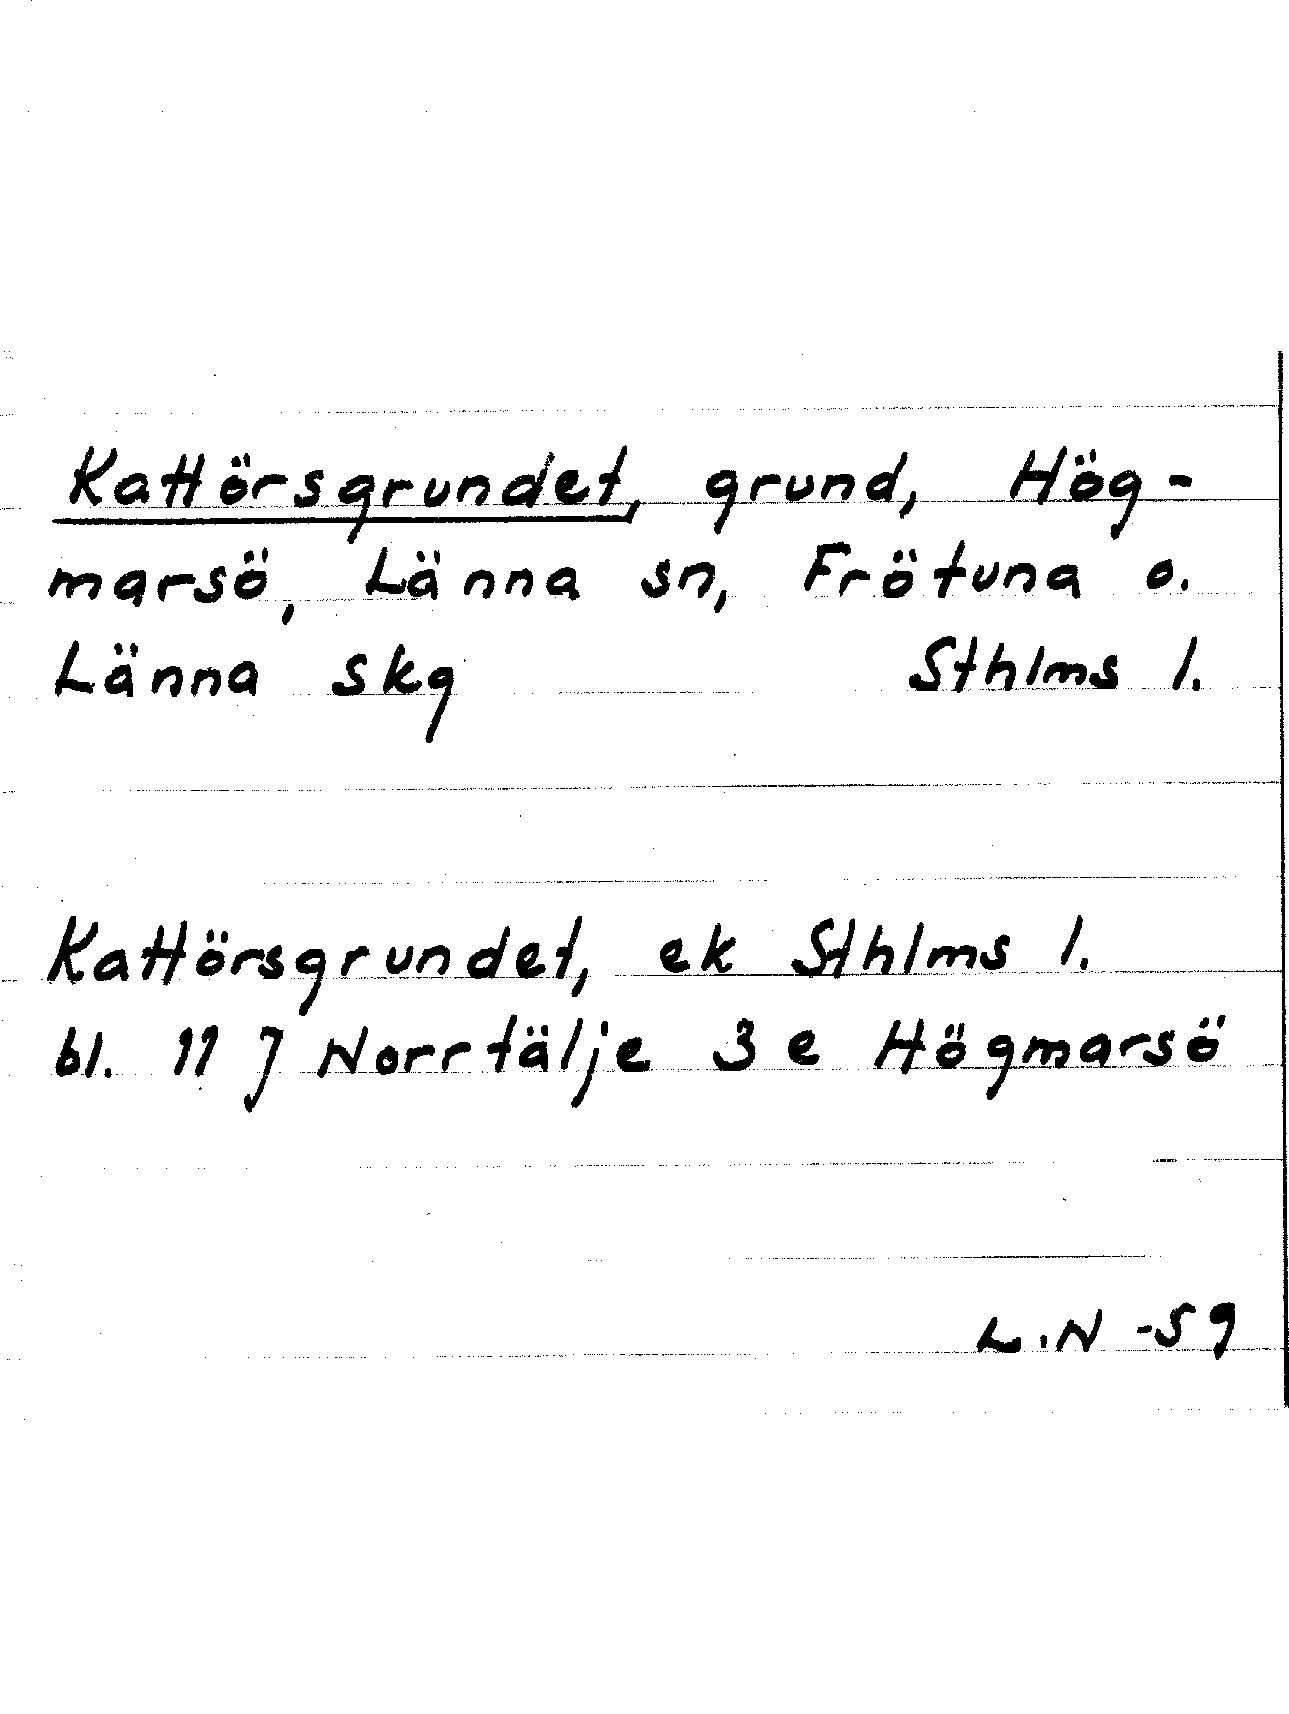 Kattörsgrundet, grund, Hög-
marsö, Länna sn, Frötuna o.
Länna skg Sthlms l.
Kattörsgrundet, ek Sthlms l.
bl. 11 J Norrtälje 3 e Högmarsö
L.N -59